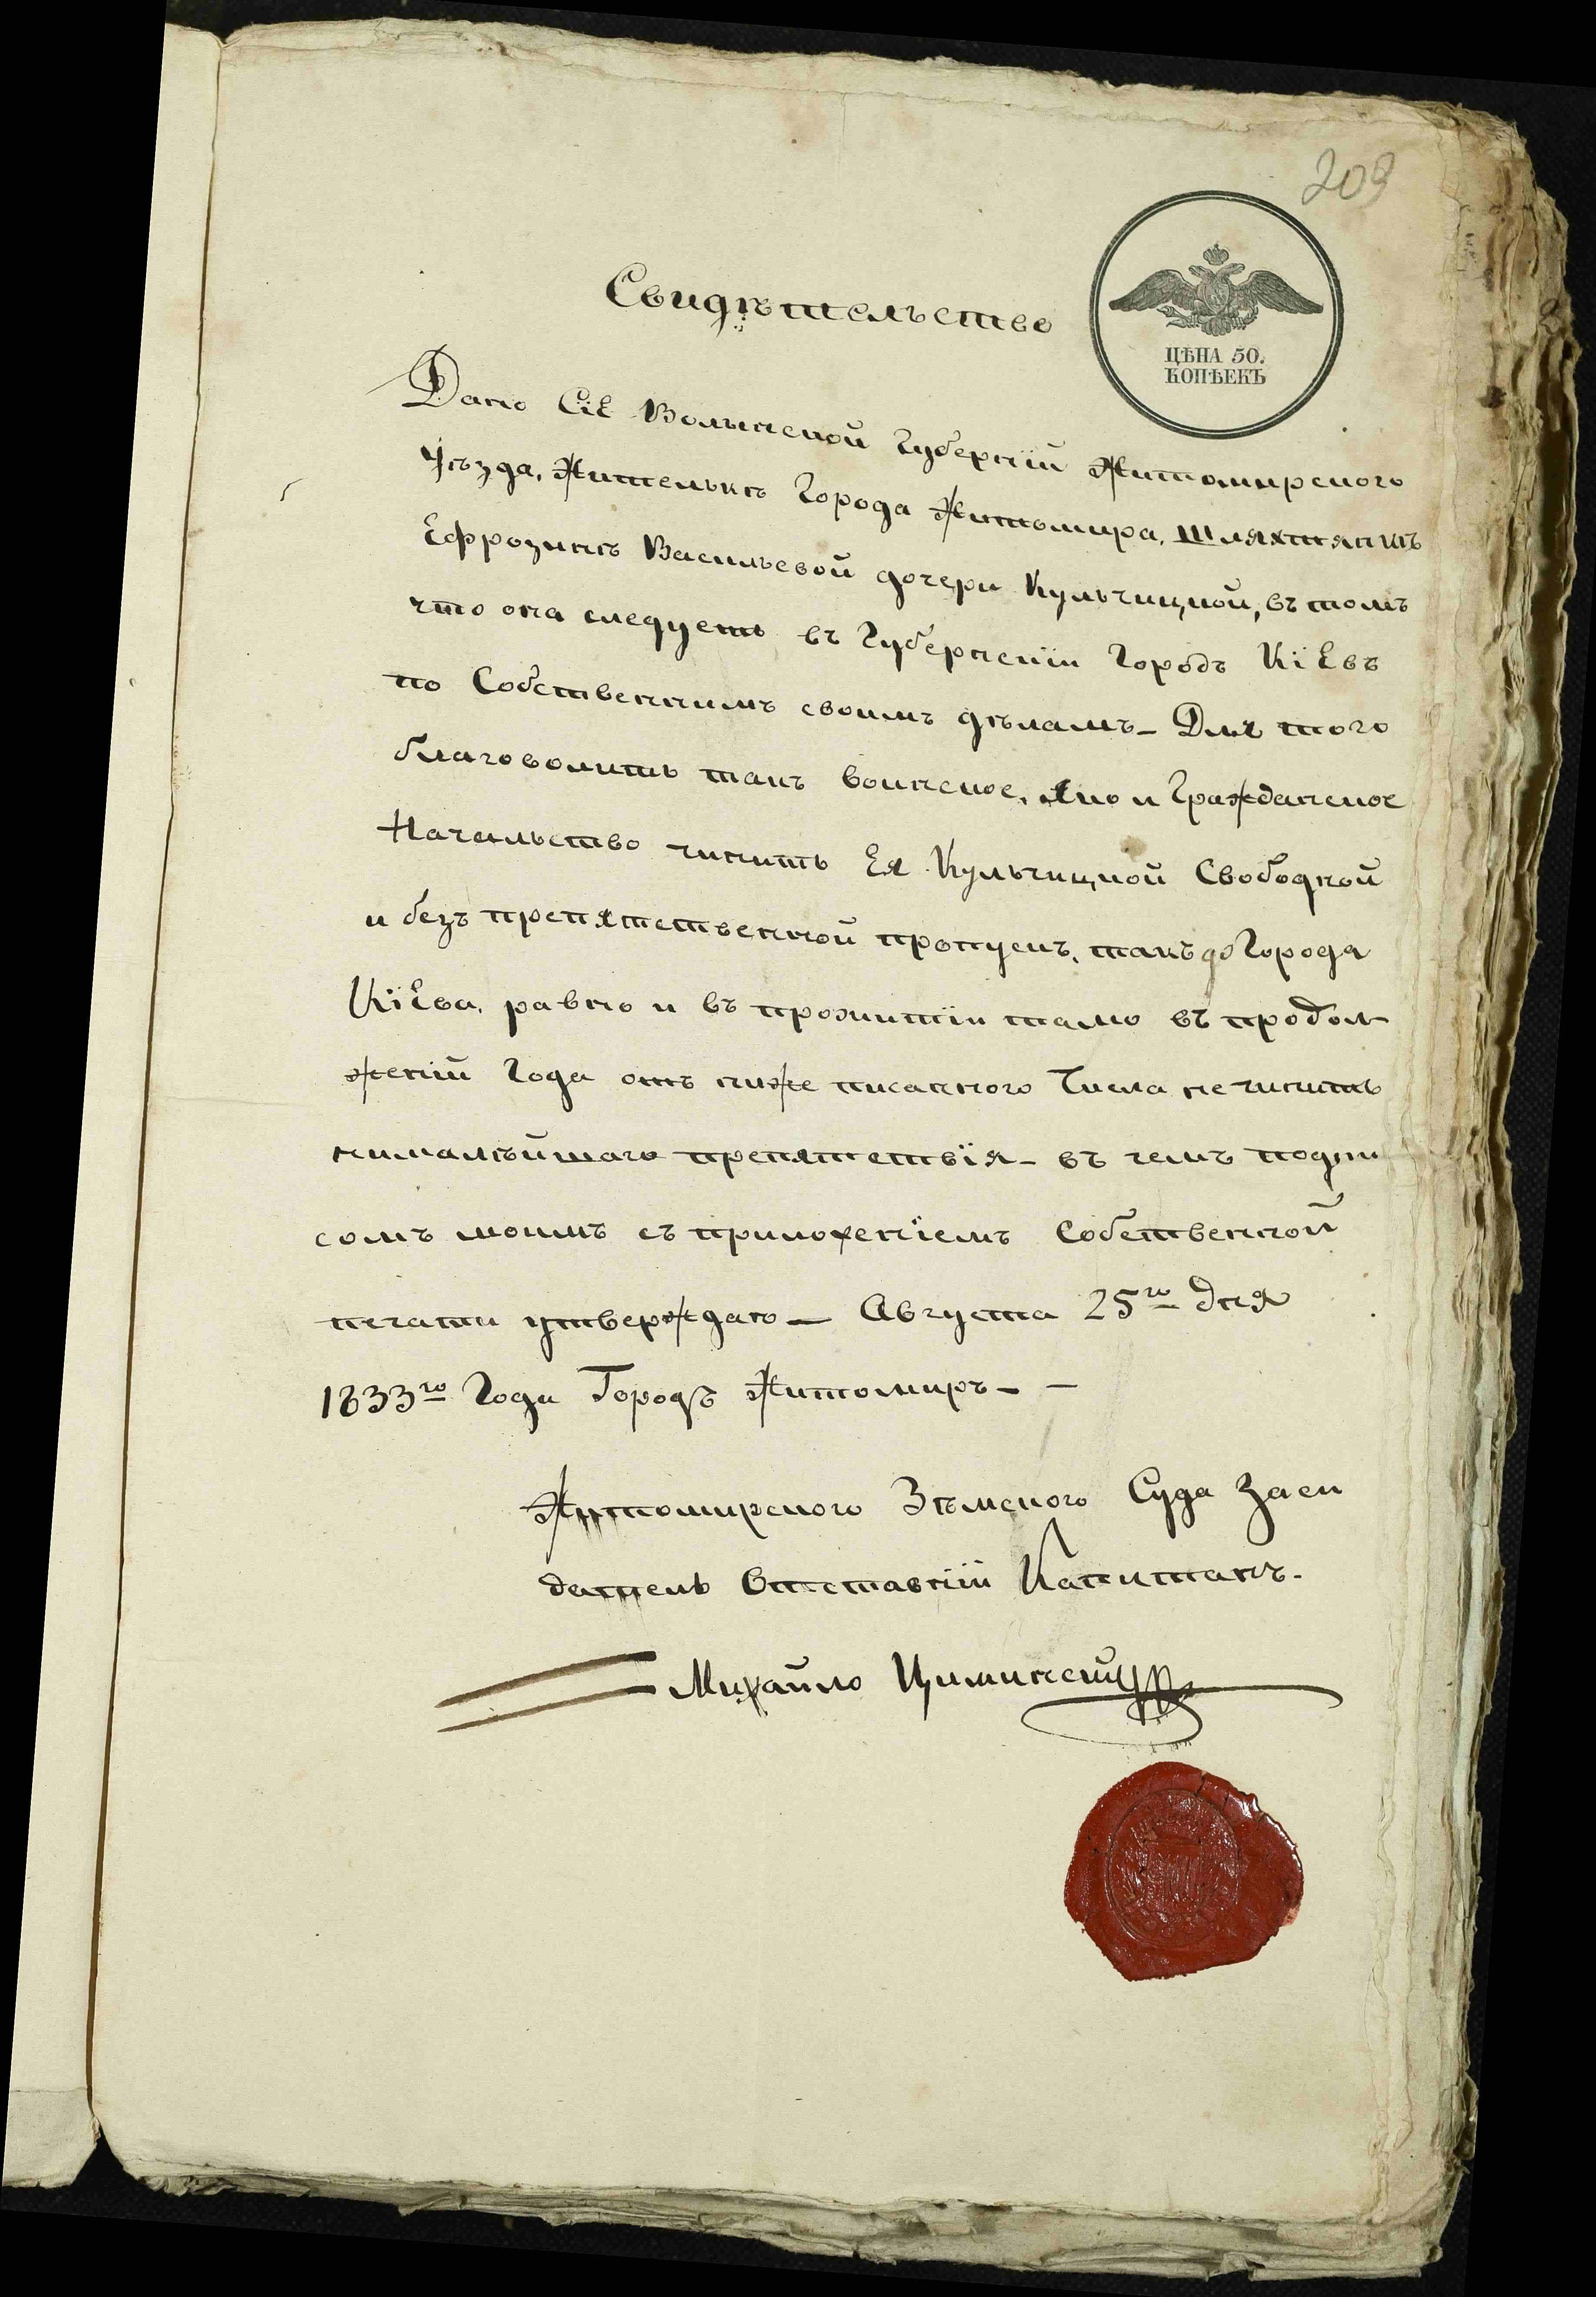 209
Свидѣтельство
ЦѢНА 50.
КОПѢЕКЪ
Дано Сіе Волынской Губерніи Житомирского
Уѣзда, Жителькѣ Города Житомира, Шляхтянкѣ
Ефрозинѣ Васильевой дочери Кульчицкой, въ томъ
что она следуетъ въ Губернскіи Городъ Кіевъ
по Собственнимъ своимъ дѣламъ – Для того
благоволитъ такъ воинское, яко и Гражданское
Начальство чинить Ея Кульчицкой Свободной
и безъ препятственной пропускъ, такъ до Города
Кіева, равно и въ прожитіи тамо въ продол
женіи Года отъ ниже писанного Числа не чинить
нималѣйшаго препятствія – въ чемъ подпи
сомъ моимъ съ приложеніемъ Собственной
печати утверждаю – Августа 25го дня
1833го Года Городъ Житомиръ – –
Житомирского Зѣмского Суда Засе
датель Отставніи Капитанъ.
Михайло